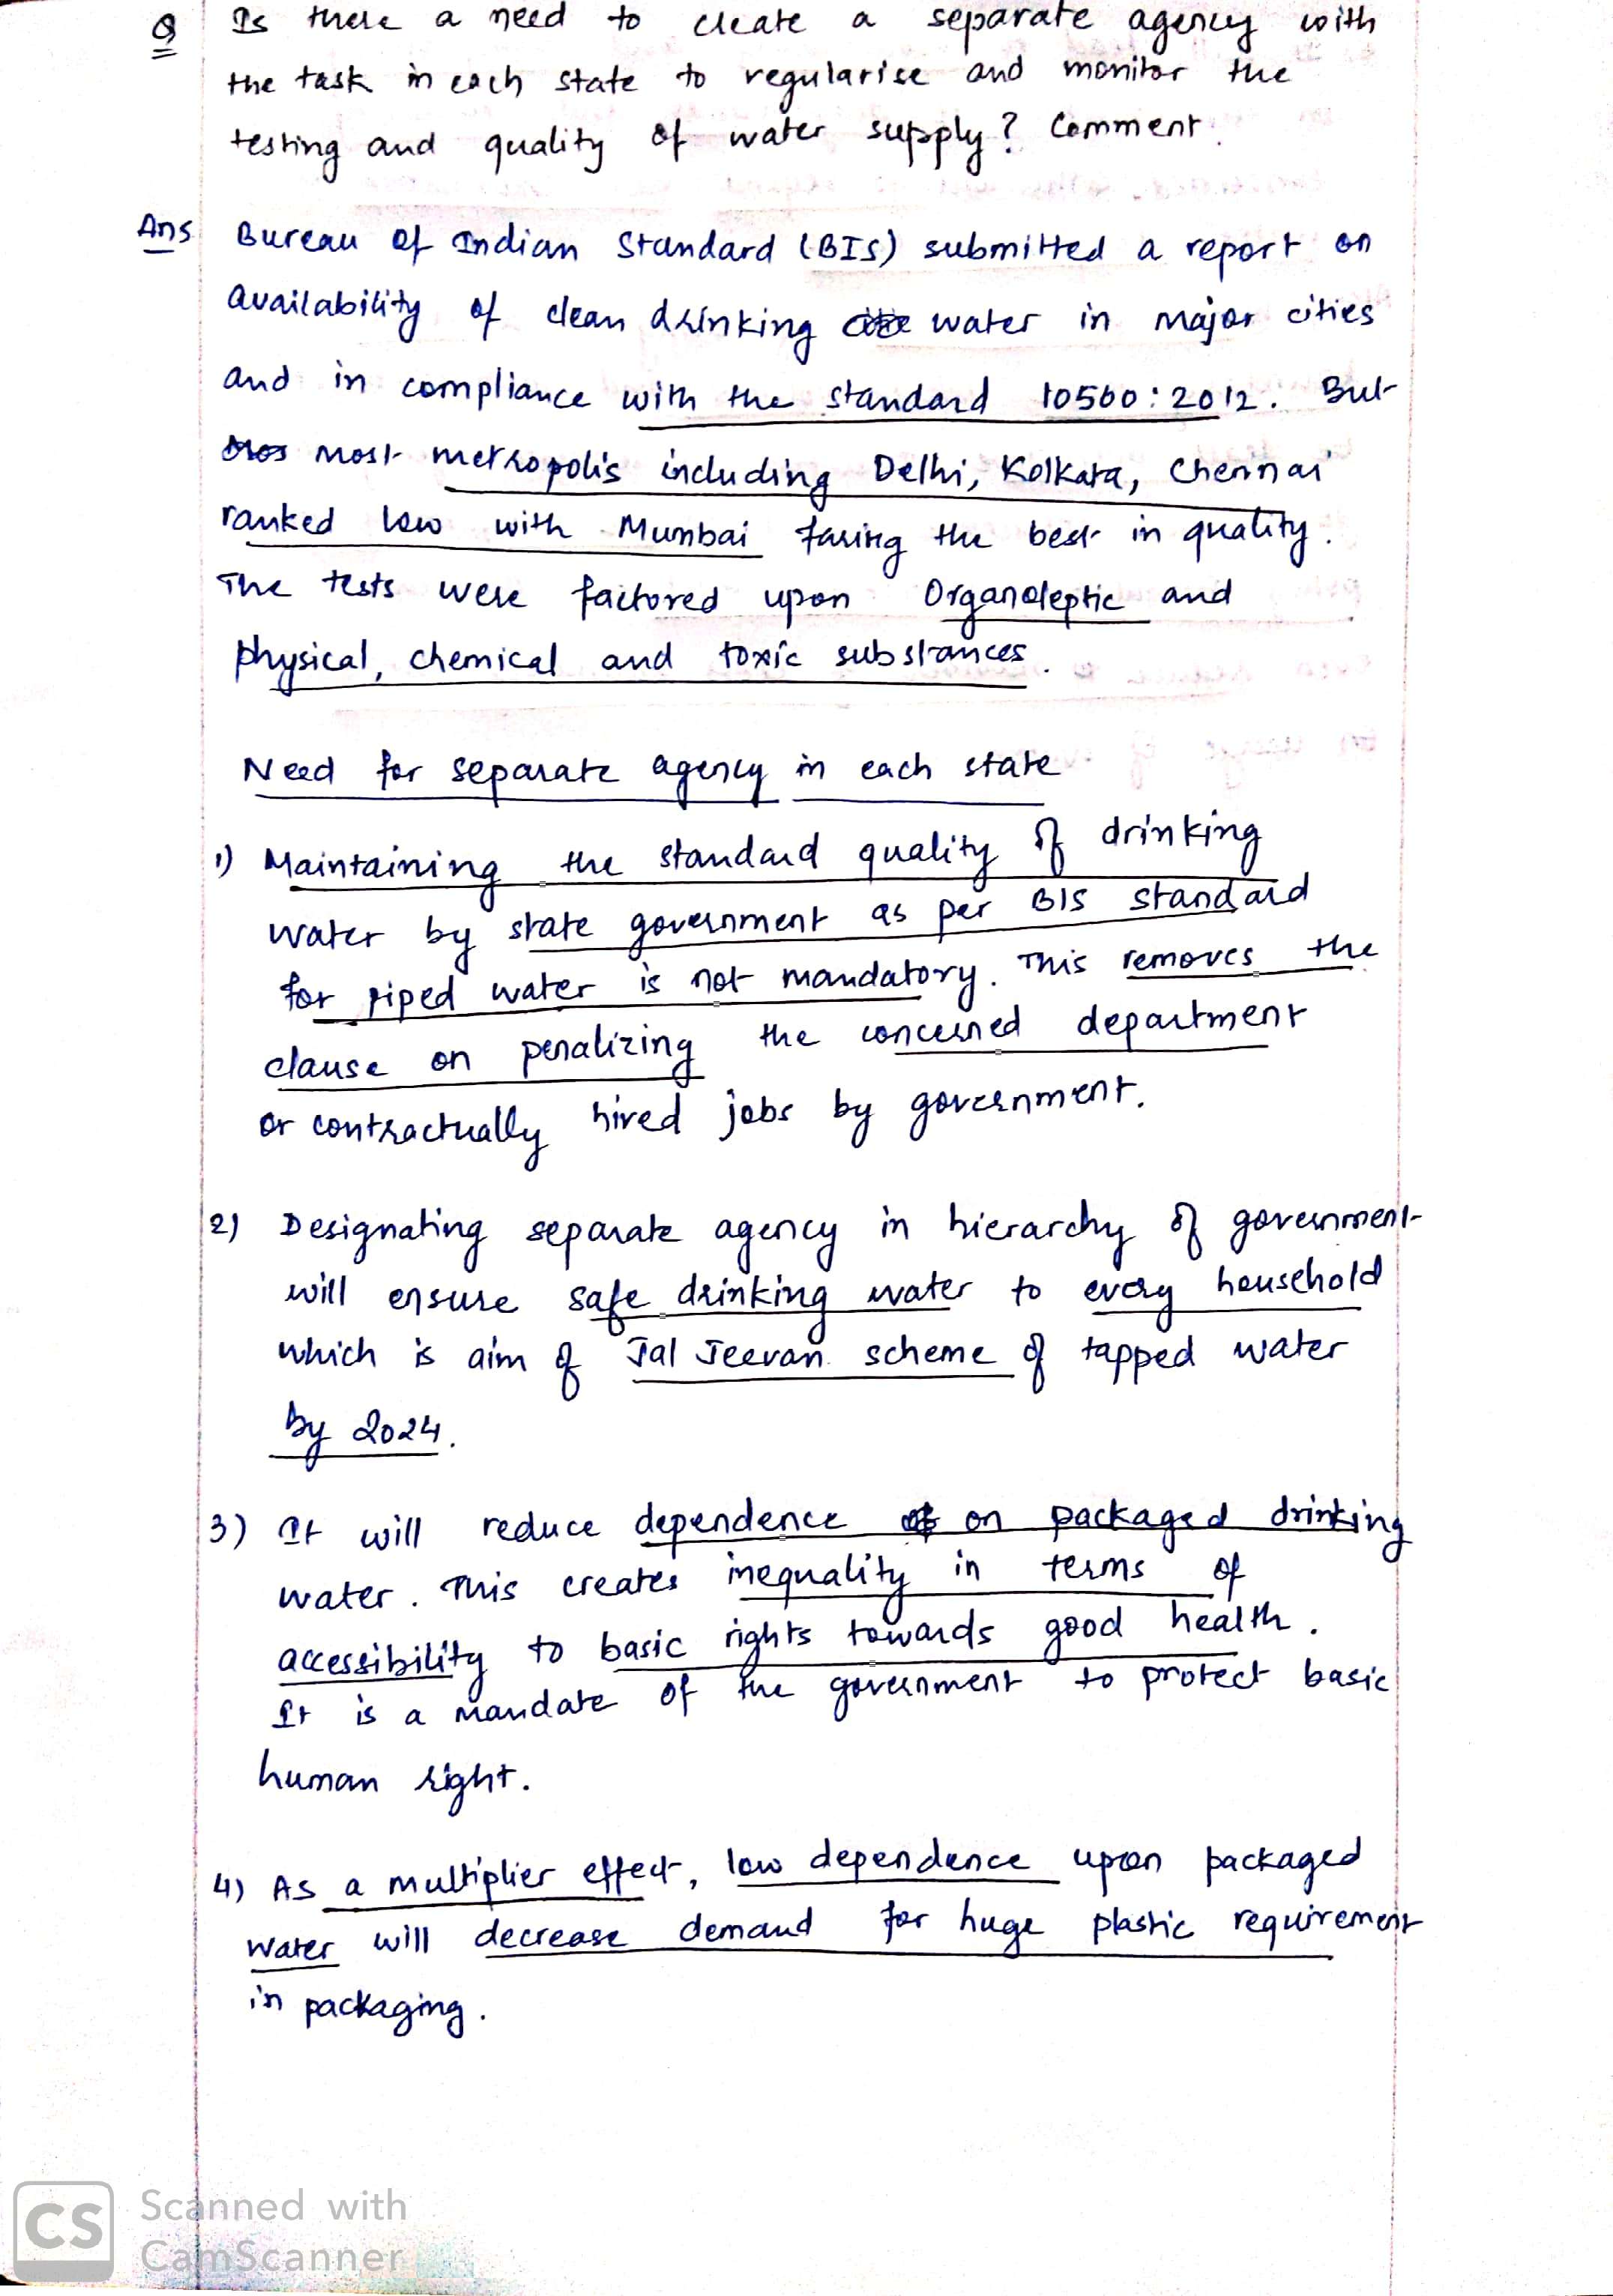 Q Is there a need to create a separate agency with
the task in each state to regularise and monitor the
testing and quality of water supply? Comment.
Ans Bureau of Indian Standard (BIS) submitted a report on
availability of clean drinking water in major cities
and in compliance with the standard 10500:2012. But
most metropolis including Delhi, Kolkata, Chennai
ranked low with Mumbai faring the best in quality.
The tests were factored upon Organoleptic and
physical, chemical and toxic substances.
Need for separate agency in each state
1) Maintaining the standard quality of drinking
water by state government as per BIS standard
for piped water is not mandatory. This removes the
clause on penalizing the concerned department
or contractually hired jobs by government.
2) Designating separate agency in hierarchy of government
will ensure safe drinking water to every household
which is aim of Jal Jeevan scheme of tapped water
by 2024.
3) It will reduce dependence on packaged drinking
water. This creates inequality in terms of
accessibility to basic rights towards good health.
It is a mandate of the government to protect basic
human right.
4) As a multiplier effect, low dependence upon packaged
water will decrease demand for huge plastic requirement
in packaging.
CS Scanned with
CamScanner